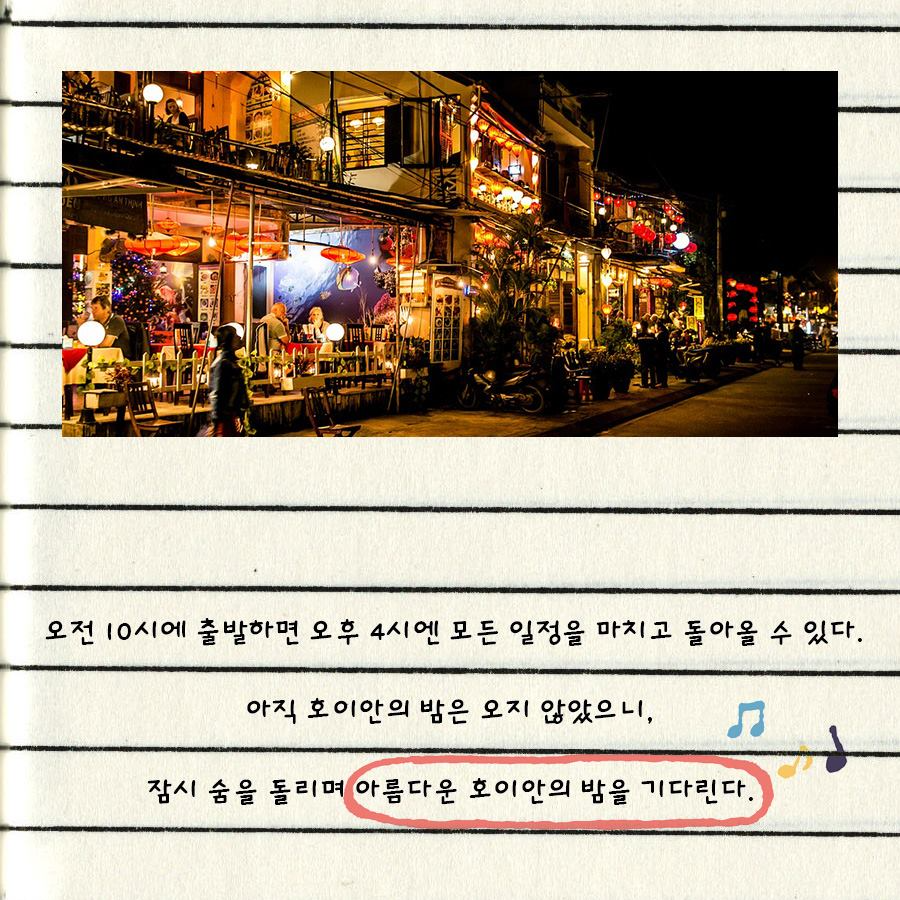 오전 10시에 출발하면 오후 4시엔 모든 일정을 마치고 돌아올 수 있다.
아직 호이안의 밤은 오지 않았으니,
잠시 숨을 돌리며 아름다운 호이안의 밤을 기다린다.